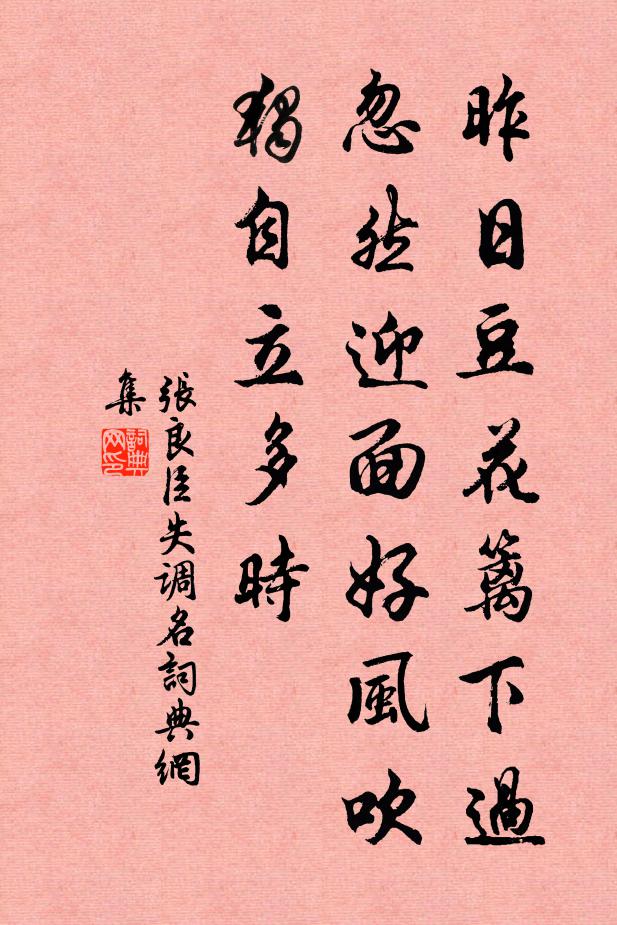 昨日豆花籬下過
忽然迎面好風吹
獨自立多時
張良臣失调名詞典網
集
詞典
网印